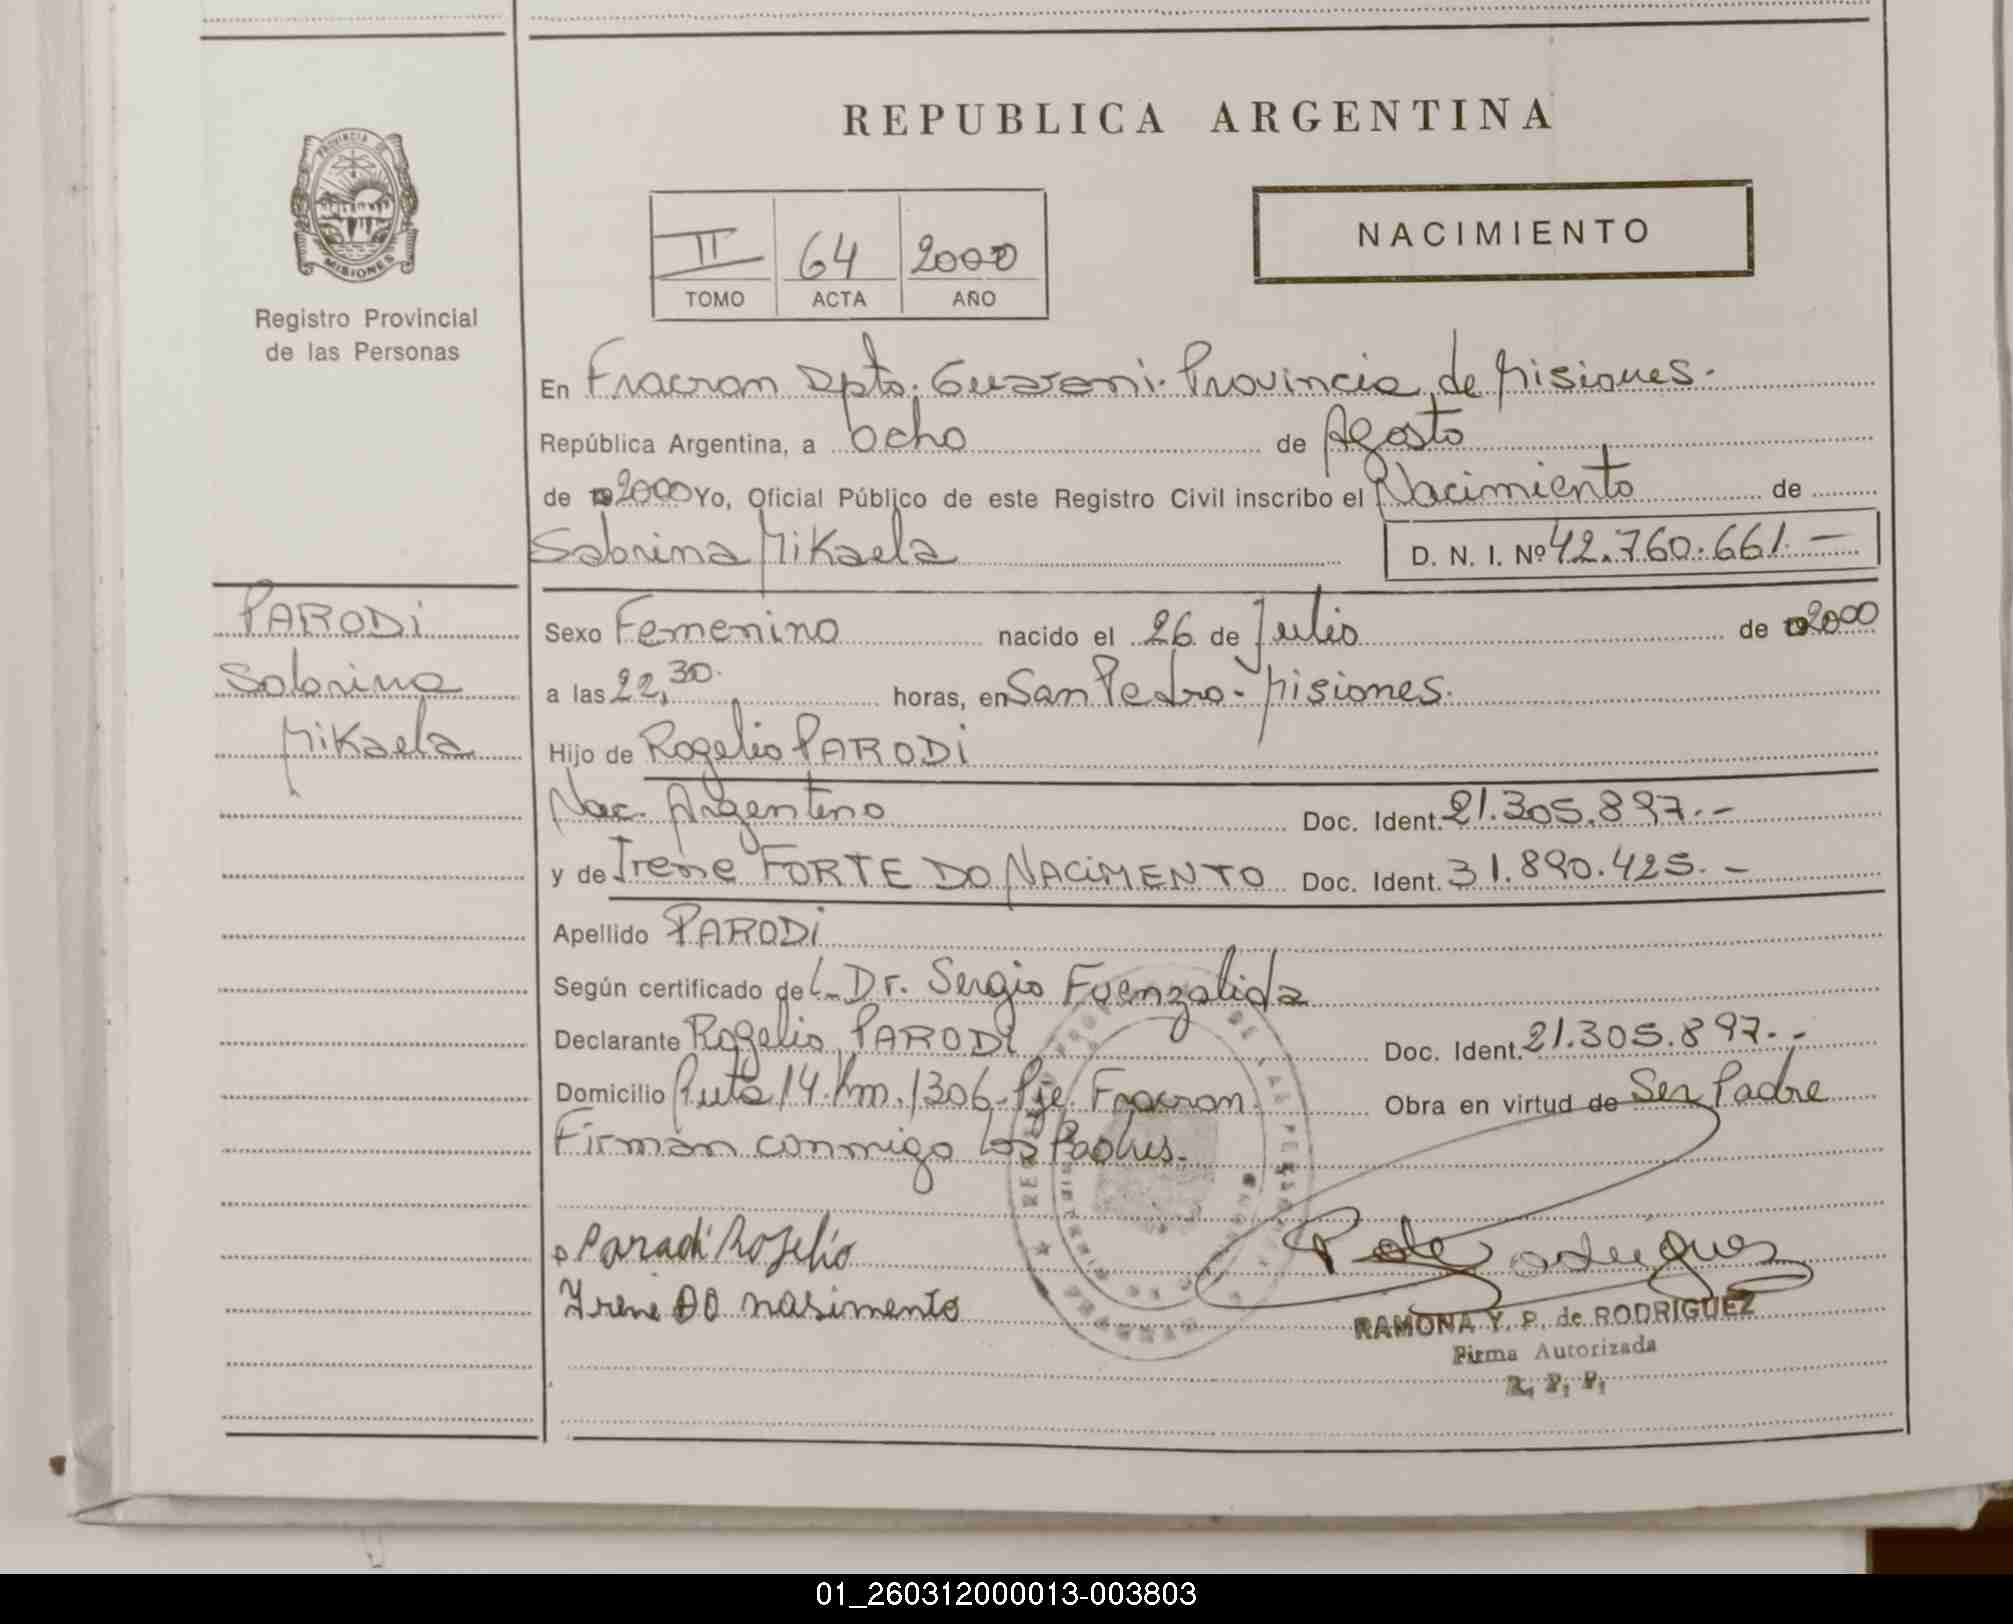 REPUBLICA ARGENTINA
PROVINCIA DE
MISIONES
Registro Provincial
de las Personas
NACIMIENTO
II 64 2000
TOMO ACTA AÑO
En Fracran Dpto. Guarani. Provincia de Misiones.
República Argentina, a Ocho de Agosto
de 2000 Yo, Oficial Público de este Registro Civil inscribo el Nacimiento de
Sabrina Mikaela D. N. I. Nº 42.760.661.—
PARODI
Sabrina
Mikaela
Sexo Femenino nacido el 26 de Julio de 2000
a las 22,30. horas, en San Pedro - Misiones.
Hijo de Rogelio PARODI
Nac. Argentino Doc. Ident. 21.305.897.-
y de Irene FORTE DO NACIMENTO Doc. Ident. 31.890.425.-
Apellido PARODI
Según certificado del Dr. Sergio Fuenzalida
Declarante Rogelio PARODI Doc. Ident. 21.305.897.-
Domicilio Ruta 14. Km. 1306 - Pje. Fracran. Obra en virtud de Ser Padre
Firman conmigo los Padres.
Parodi Rogelio
Irene DO nasimento
RAMONA Y. P. de RODRIGUEZ
Firma Autorizada
R. P. P.
01_260312000013-003803